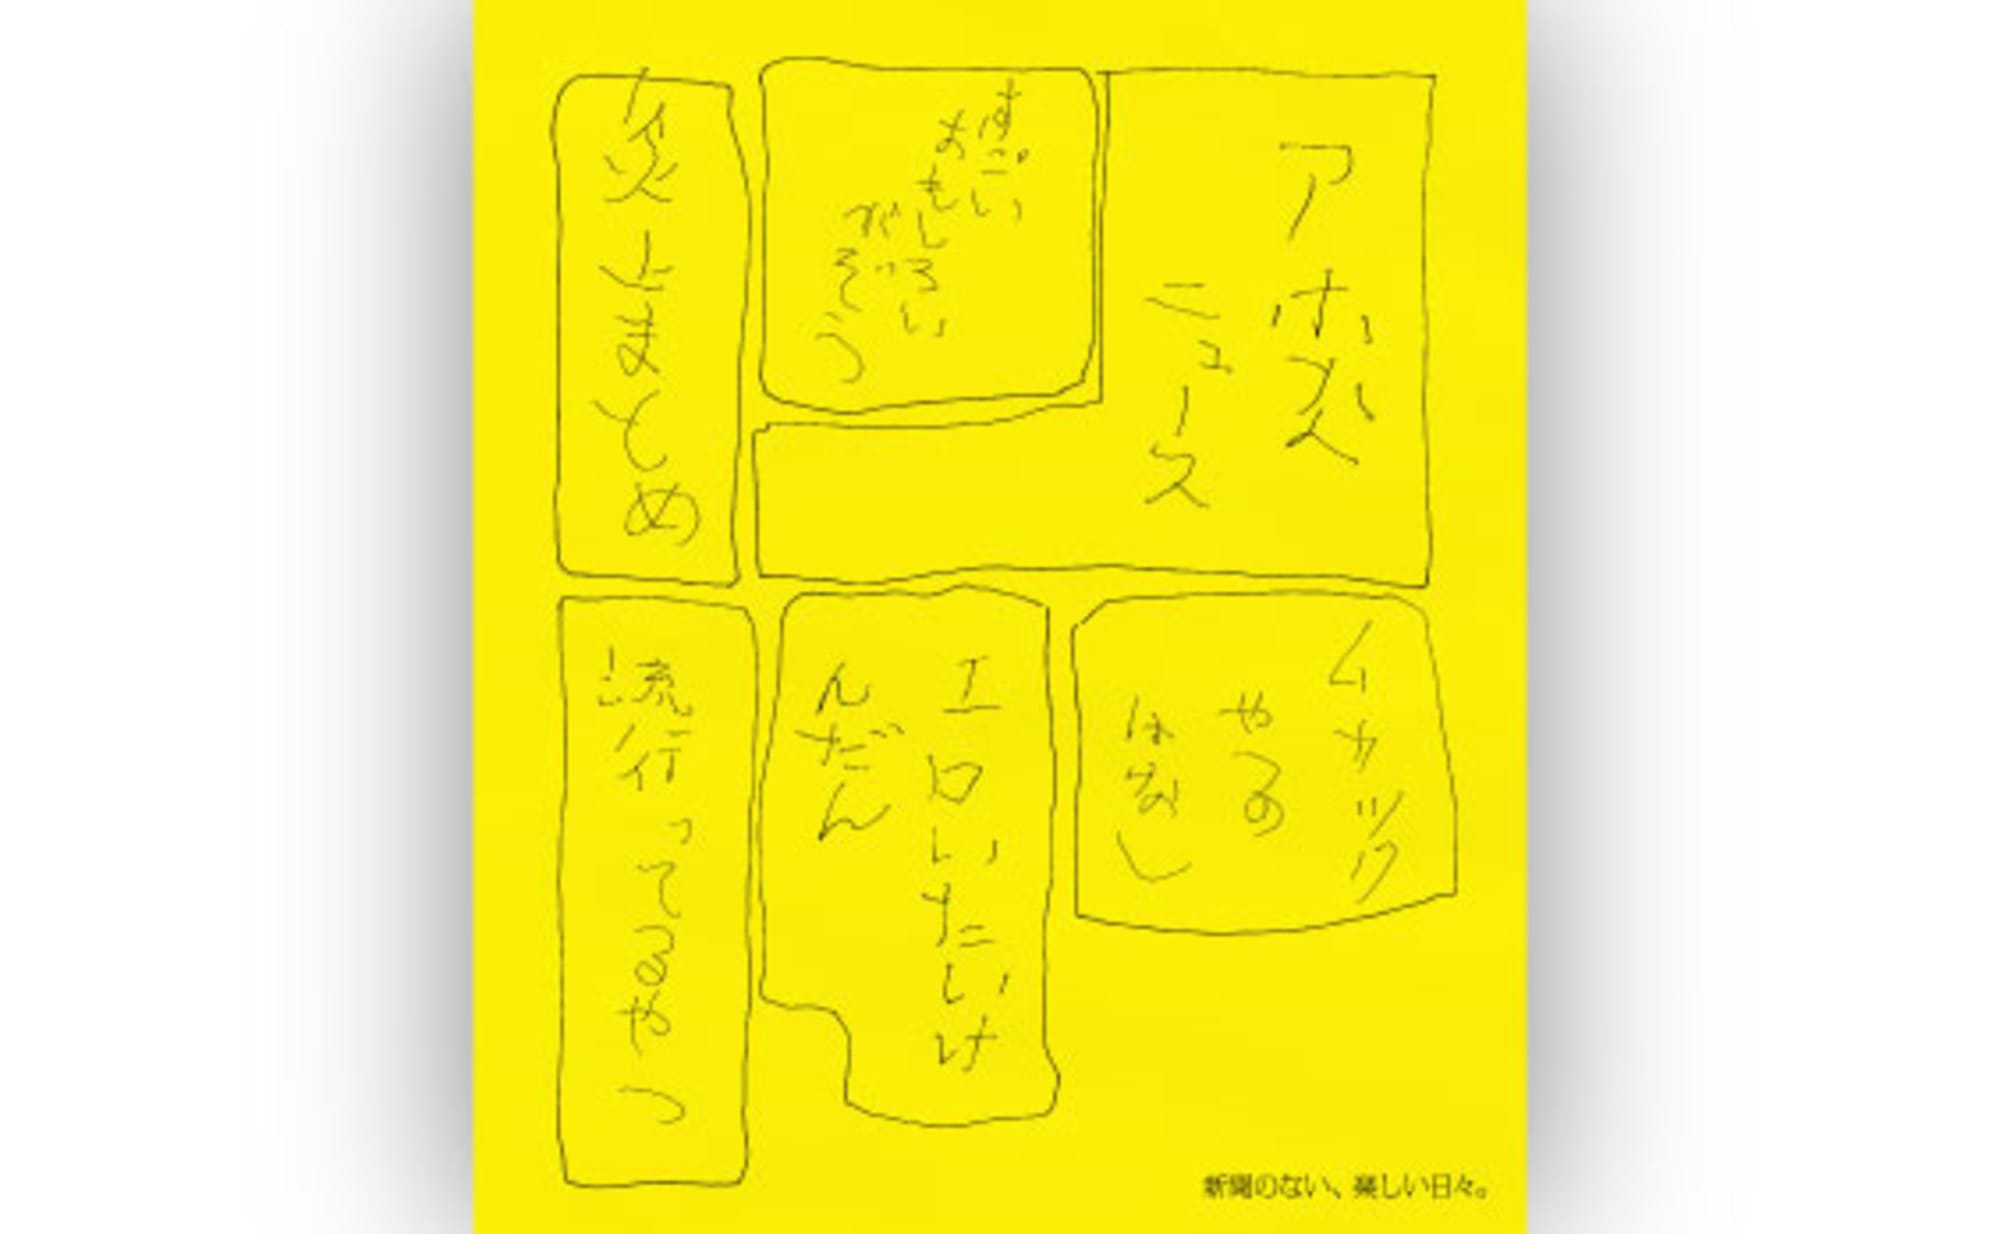 アホな
ニュース
すごい
おもしろい
がぞう
炎上まとめ
ムカック
やつの
はなし
エロいたいけ
んだん
流行ってるやつ
新聞のない、楽しい日々。